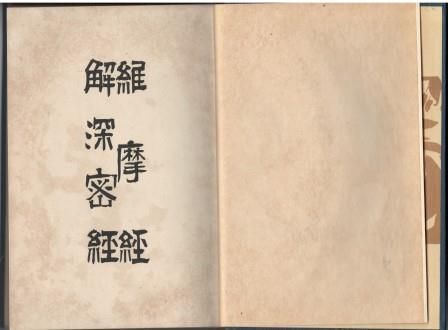 維摩經
解深密經